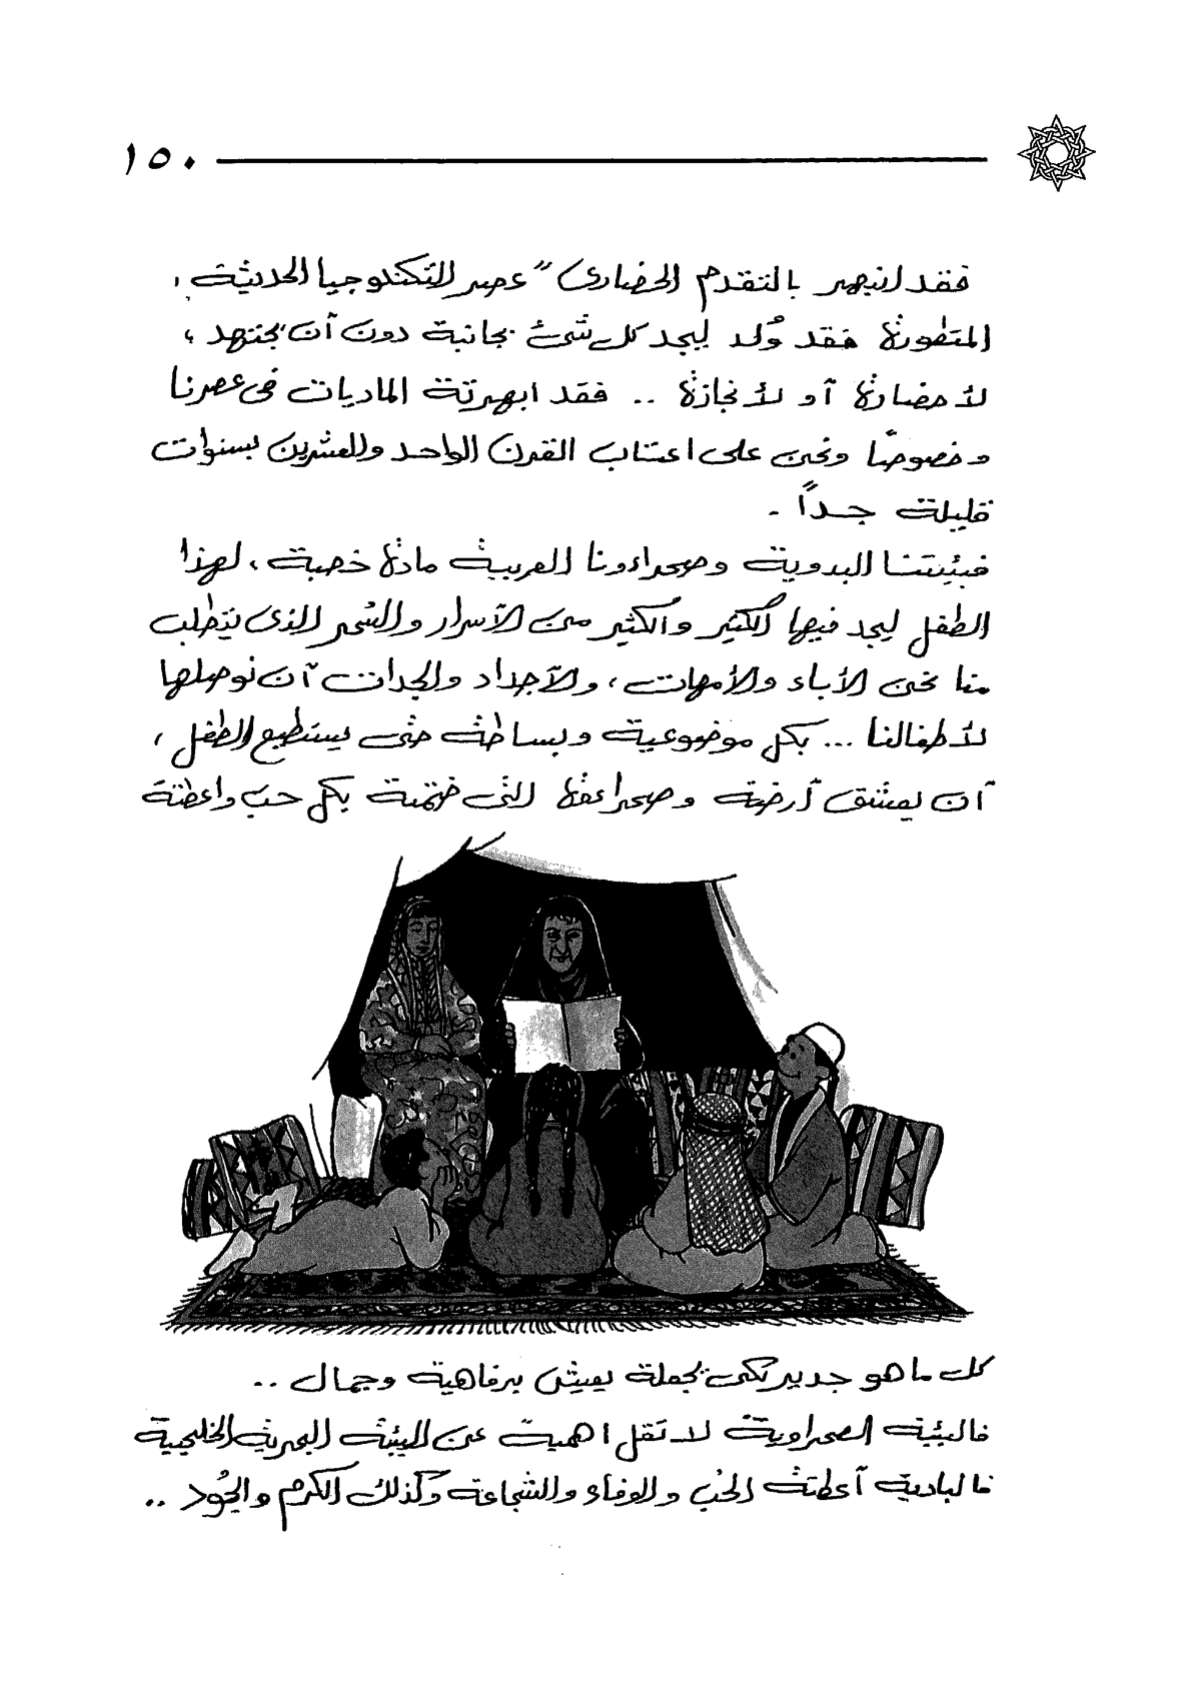 ١٥٠
فقد انبهر بالتقدم الحضارى " عصر التكنلوجيا الحديثة ،
المتطورة فقد وُلد ليجد كل شئ بجانبة دون أن يجتهد ،
لأحضارة أو لأنجازة .. فقد ابهرتة الماديات فى عصرنا
وخصوصًا ونحن على اعتاب القرن الواحد والعشرين بسنوات
قليلة جـداً .
فبئيتنا البدوية وصحراءونا العربية مادة خصبة ، لهذا
الطفل ليجد فيها الكثير والكثير من الأسرار والسُحر الذى يتطلب
منا نحن الأباء والأمهات ، والأجداد والجدات أن نوصلها
لأطفالنا ... بكل موضوعية وبساطة حتى يستطيع الطفل ،
أن يعشق أرضة وصحراءة التى ضمتة بكل حب واعطتة
كل ما هو جدير لكى يجعلة يعيش برفاهية وجمال ..
فالبئية الصحراوية لا تقل اهمية عن البيئة البحرية الخليجية
فالبادية أعطتة الحُب والوفاء والشجاعة وكذلك الكرم والجُود ..